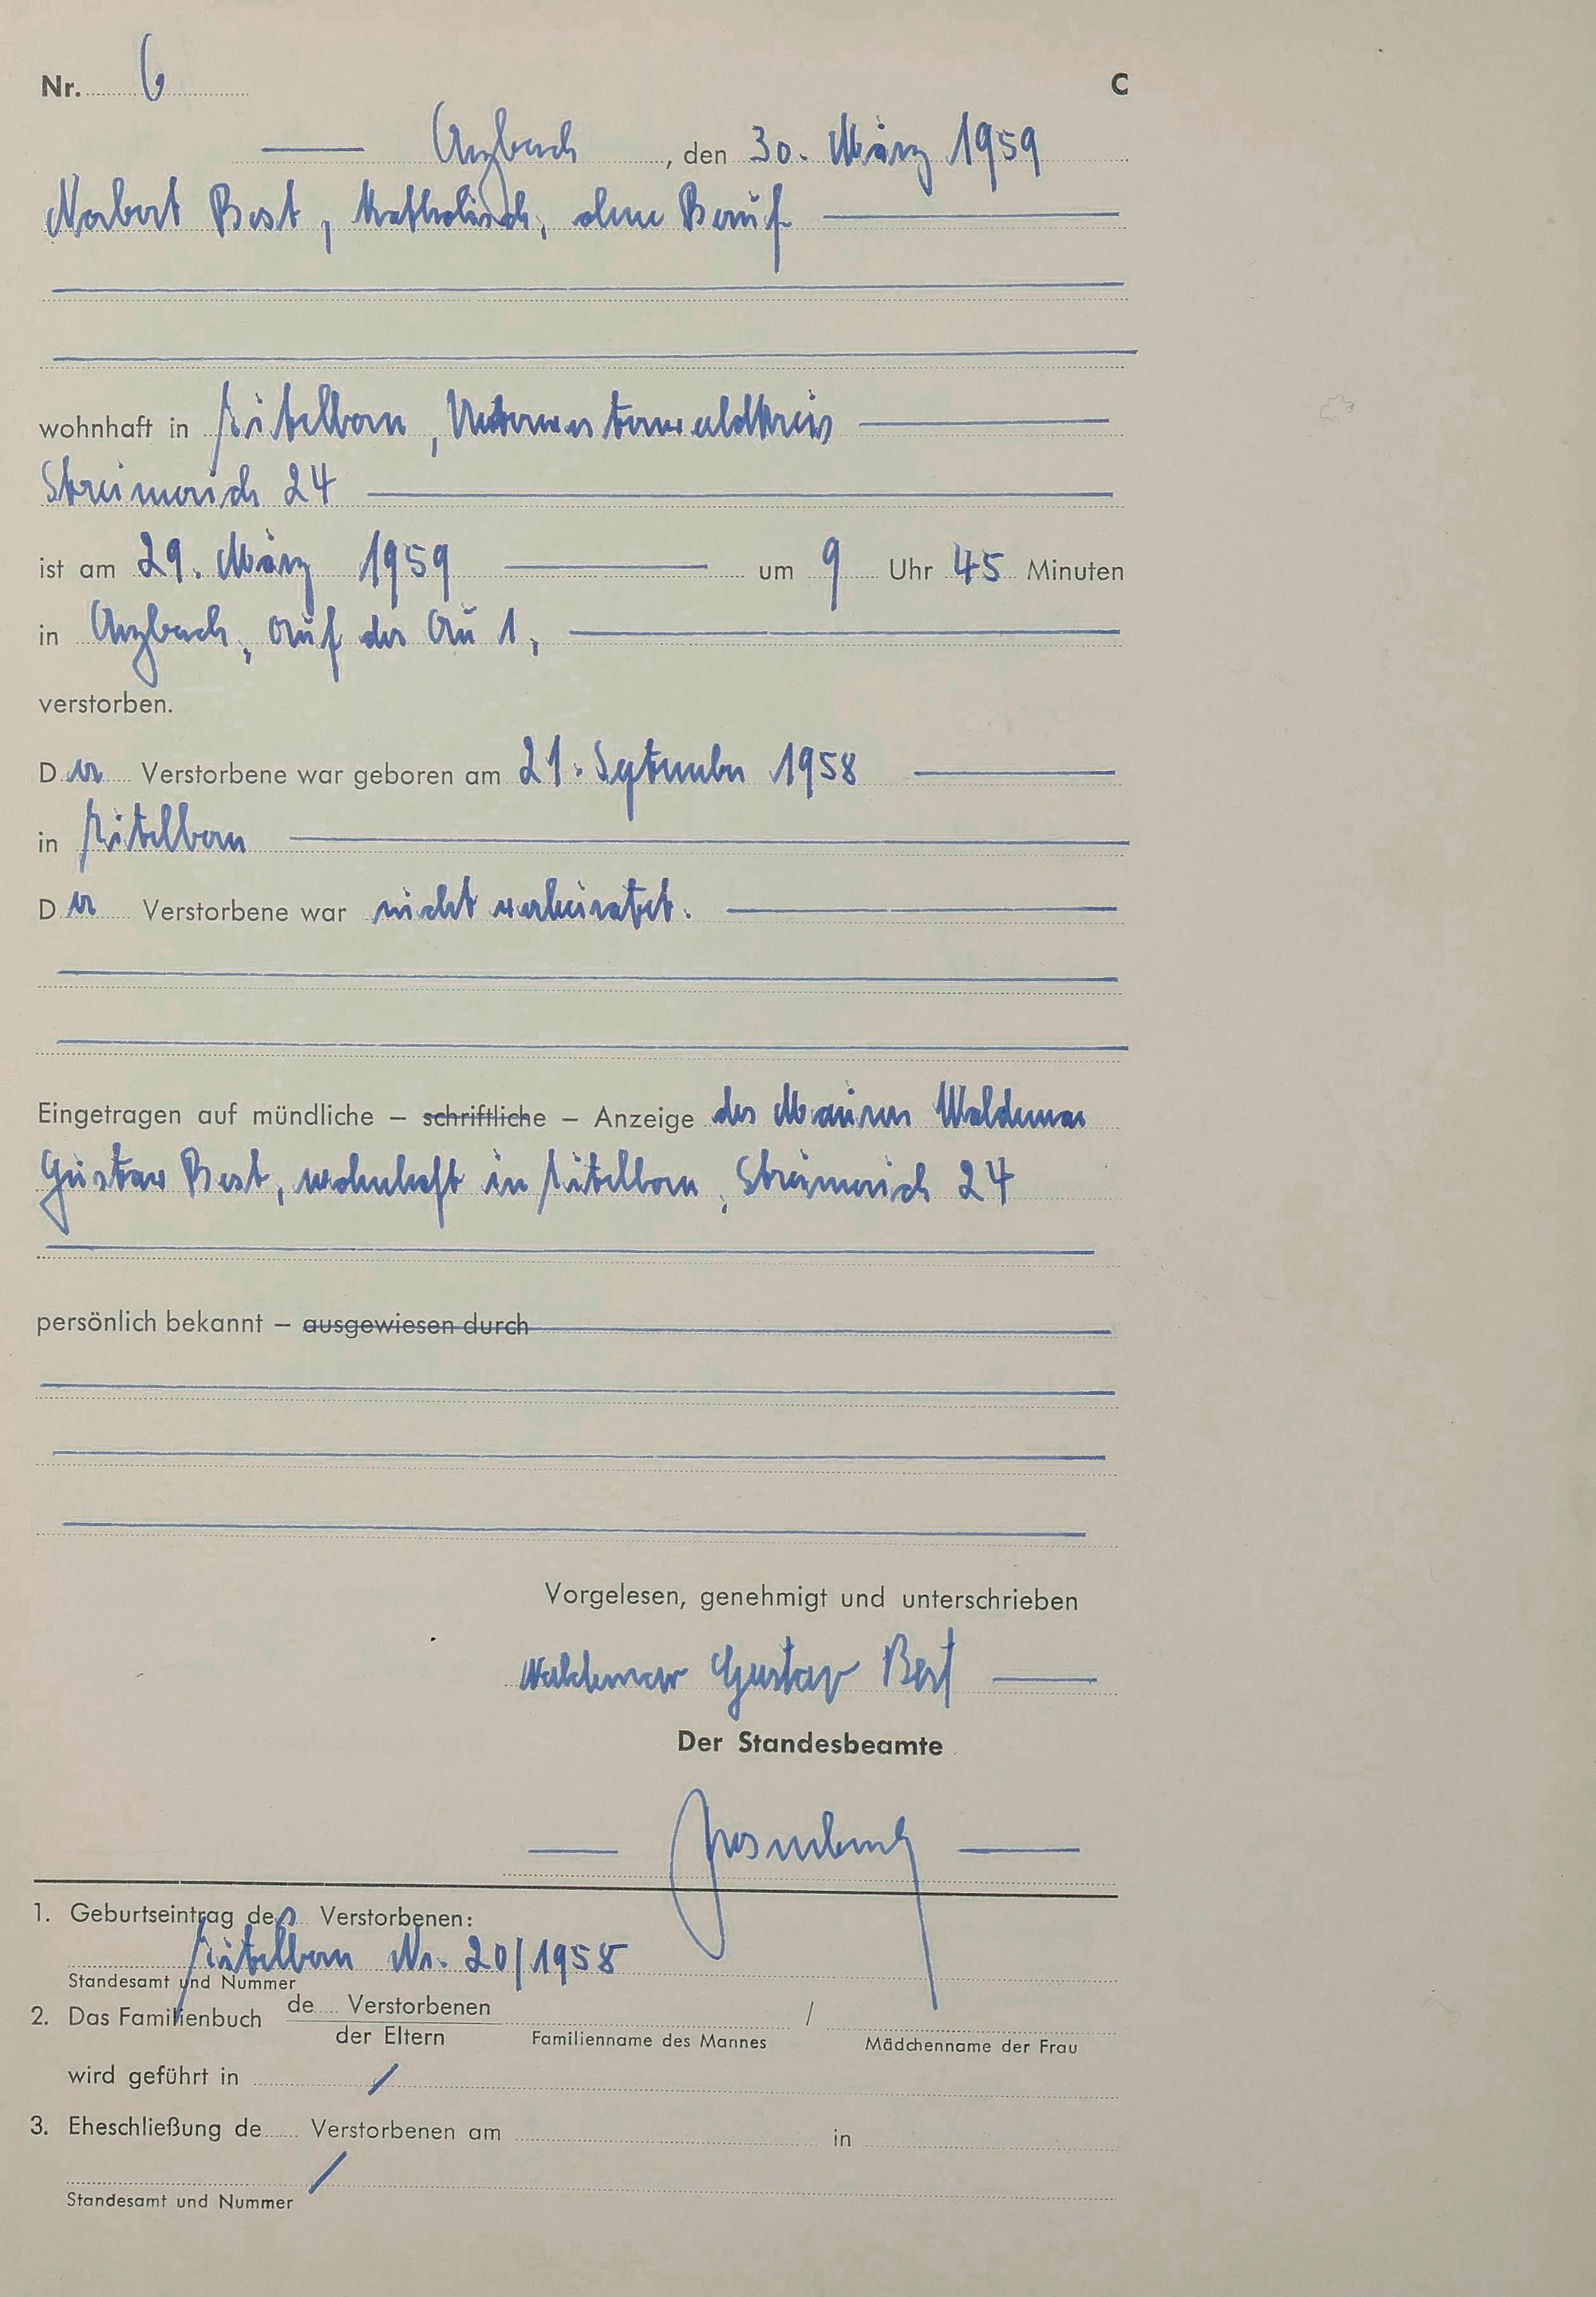 Nr. 6 C
Arzbach, den 30. März 1959
Norbert Best, katholisch, ohne Beruf
wohnhaft in Eitelborn, Unterwesterwaldkreis
24
ist am 29. März 1959 um 9 Uhr 45 Minuten
in Arzbach, auf der Au 1,
verstorben.
Der Verstorbene war geboren am 21. September 1958
in Eitelborn
Der Verstorbene war nicht verheiratet.
Eingetragen auf mündliche – schriftliche – Anzeige des Maurers Waldemar
Gustav Best, wohnhaft in Eitelborn, 24
persönlich bekannt – ausgewiesen durch
Vorgelesen, genehmigt und unterschrieben
Waldemar Gustav Best
Der Standesbeamte
1. Geburtseintrag des Verstorbenen:
Eitelborn Nr. 20/1958
Standesamt und Nummer
2. Das Familienbuch de Verstorbenen /
der Eltern Familienname des Mannes Mädchenname der Frau
wird geführt in /
3. Eheschließung de Verstorbenen am in
/
Standesamt und Nummer